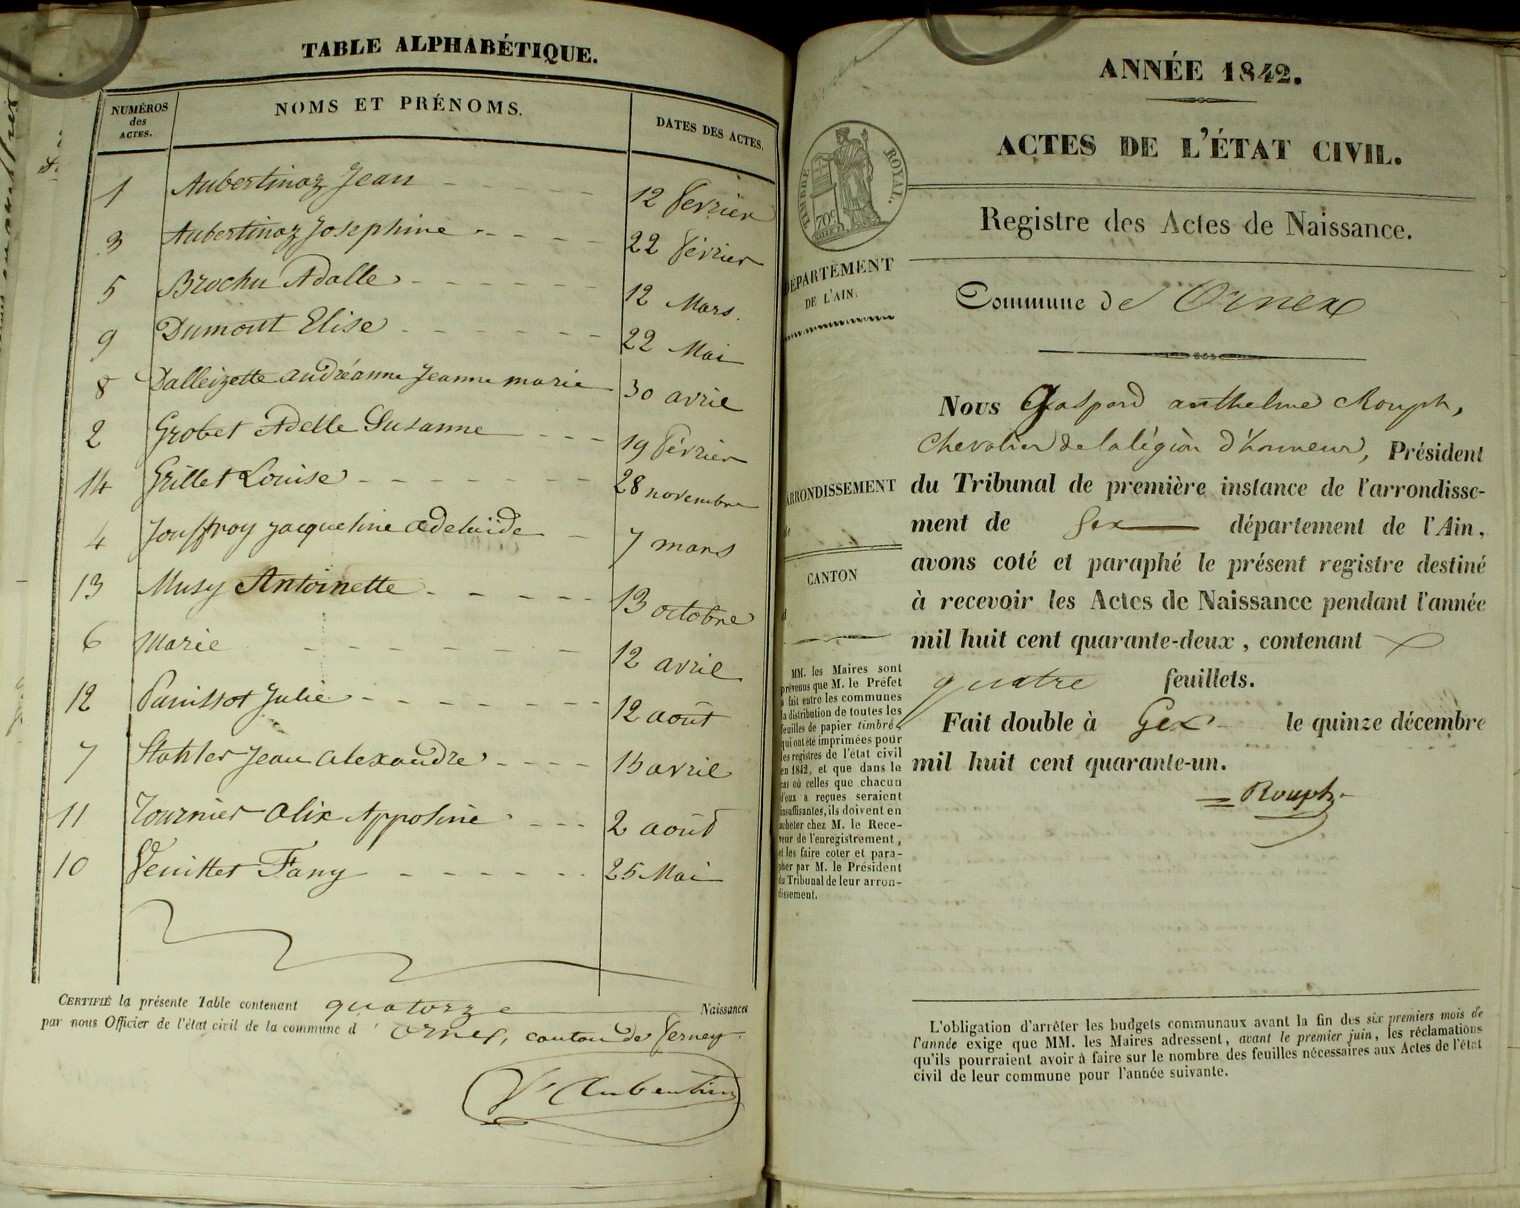 TABLE ALPHABÉTIQUE.
NUMÉROS des ACTES. NOMS ET PRÉNOMS. DATES DES ACTES.
1 Aubertinoz Jean 12 février
3 Aubertinoz Josephine 22 février
5 Brochu Adalle 12 Mars.
9 Dumont Elise 22 Mai
8 Dalleizette andréanne Jeanne marie 30 avril
2 Grobet Adelle Susanne 19 février
14 Grillet Louise 28 novembre
4 Jouffroy jacqueline adelaïde 7 mars
13 Musy Antoinette 13 octobre
6 Marie 12 avril
12 Panissot Julie 12 août
7 Stahler Jean alexandre 15 avril
11 Tournier alix Appoline 2 août
10 Veuillet Fany 25 Mai
CERTIFIÉ la présente Table contenant quatorze Naissances
par nous Officier de l'état civil de la commune d' ornex, canton de ferney.
ANNÉE 1842.
ACTES DE L'ÉTAT CIVIL.
TIMBRE ROYAL.
70c
Registre des Actes de Naissance.
DÉPARTEMENT
DE L'AIN.
Commune de Ornex
Nous Gaspard anthelme Rouph,
chevalier de la légion d'honneur, Président
du Tribunal de première instance de l'arrondisse-
ment de Gex département de l'Ain,
avons coté et paraphé le présent registre destiné
à recevoir les Actes de Naissance pendant l'année
mil huit cent quarante-deux, contenant
quatre feuillets.
Fait double à Gex le quinze décembre
mil huit cent quarante-un.
Rouph
ARRONDISSEMENT
CANTON
MM. les Maires sont
prévenus que M. le Préfet
a fait entre les communes
la distribution de toutes les
feuilles de papier timbré,
qui ont été imprimées pour
les registres de l'état civil
en 1842, et que dans le
cas où celles que chacun
d'eux a reçues seraient
insuffisantes, ils doivent en
acheter chez M. le Rece-
veur de l'enregistrement,
et les faire coter et para-
pher par M. le Président
du Tribunal de leur arron-
dissement.
L'obligation d'arrêter les budgets communaux avant la fin des six premiers mois de
l'année exige que MM. les Maires adressent, avant le premier juin, les réclamations
qu'ils pourraient avoir à faire sur le nombre des feuilles nécessaires aux Actes de l'état
civil de leur commune pour l'année suivante.